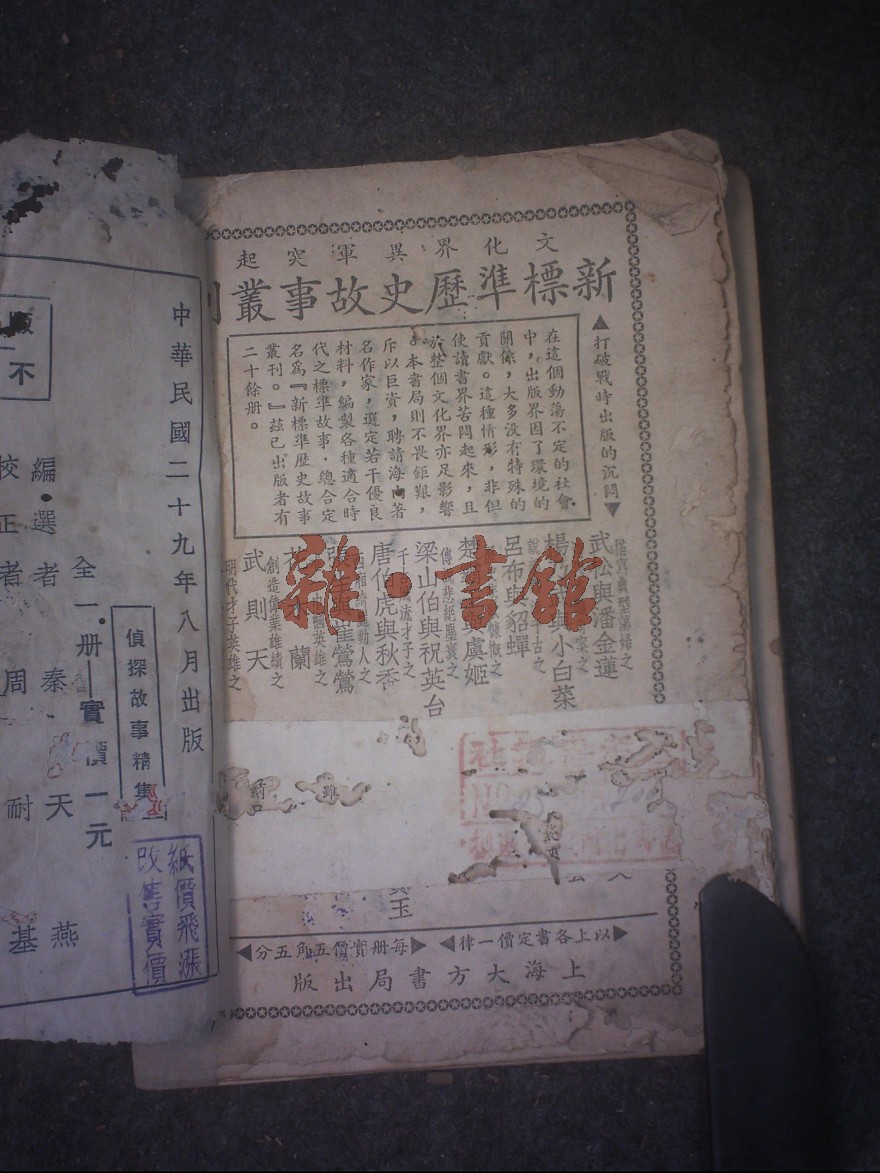 文化界異軍突起
新標準歷史故事叢刊
▲打破戰時出版的沉悶▼
在這個動蕩不定的社會
中，出版界因了環境的
關係，大多沒有特殊的
貢獻。這種情形，非但
使讀書界苦悶起來，且
於整個文化界亦足影響
。本書局則不畏鉅艱，
斥以巨資，聘請海內著
名作家，選定若干優良
材料，編製各種適合時
代之標準故事，總合定
名為『新標準歷史故事
叢刊。』茲已出版者有
二十餘册。
描寫典型蕩婦之
武松與潘金蓮
楊 與小白菜
呂布與貂蟬
楚 虞姬
梁山伯與祝英台
千 風流才子之
唐伯虎與秋香
崔鶯鶯
英雄之
花木蘭
創造偉業雄績之
武則天
明代才子英雄之
玉
▶以上各書定價一律◀▶每册實價五角五分◀
上海大方書局出版
中華民國二十九年八月出版
偵探故事精集
全一册 實價一元
編選者 秦天燕
校正者 周耐基
版
不
紙價飛漲
改售實價
雜·書館